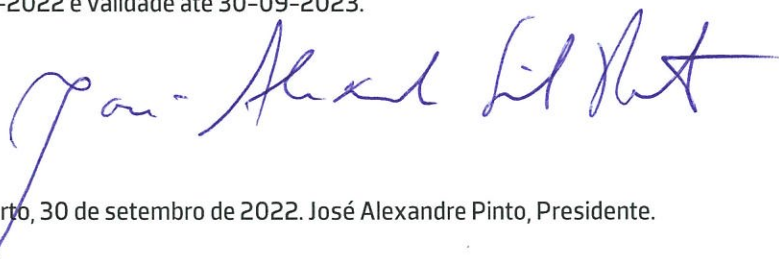 -2022 e validade até 30-09-2023.
José Alexandre Pinto
rto, 30 de setembro de 2022. José Alexandre Pinto, Presidente.